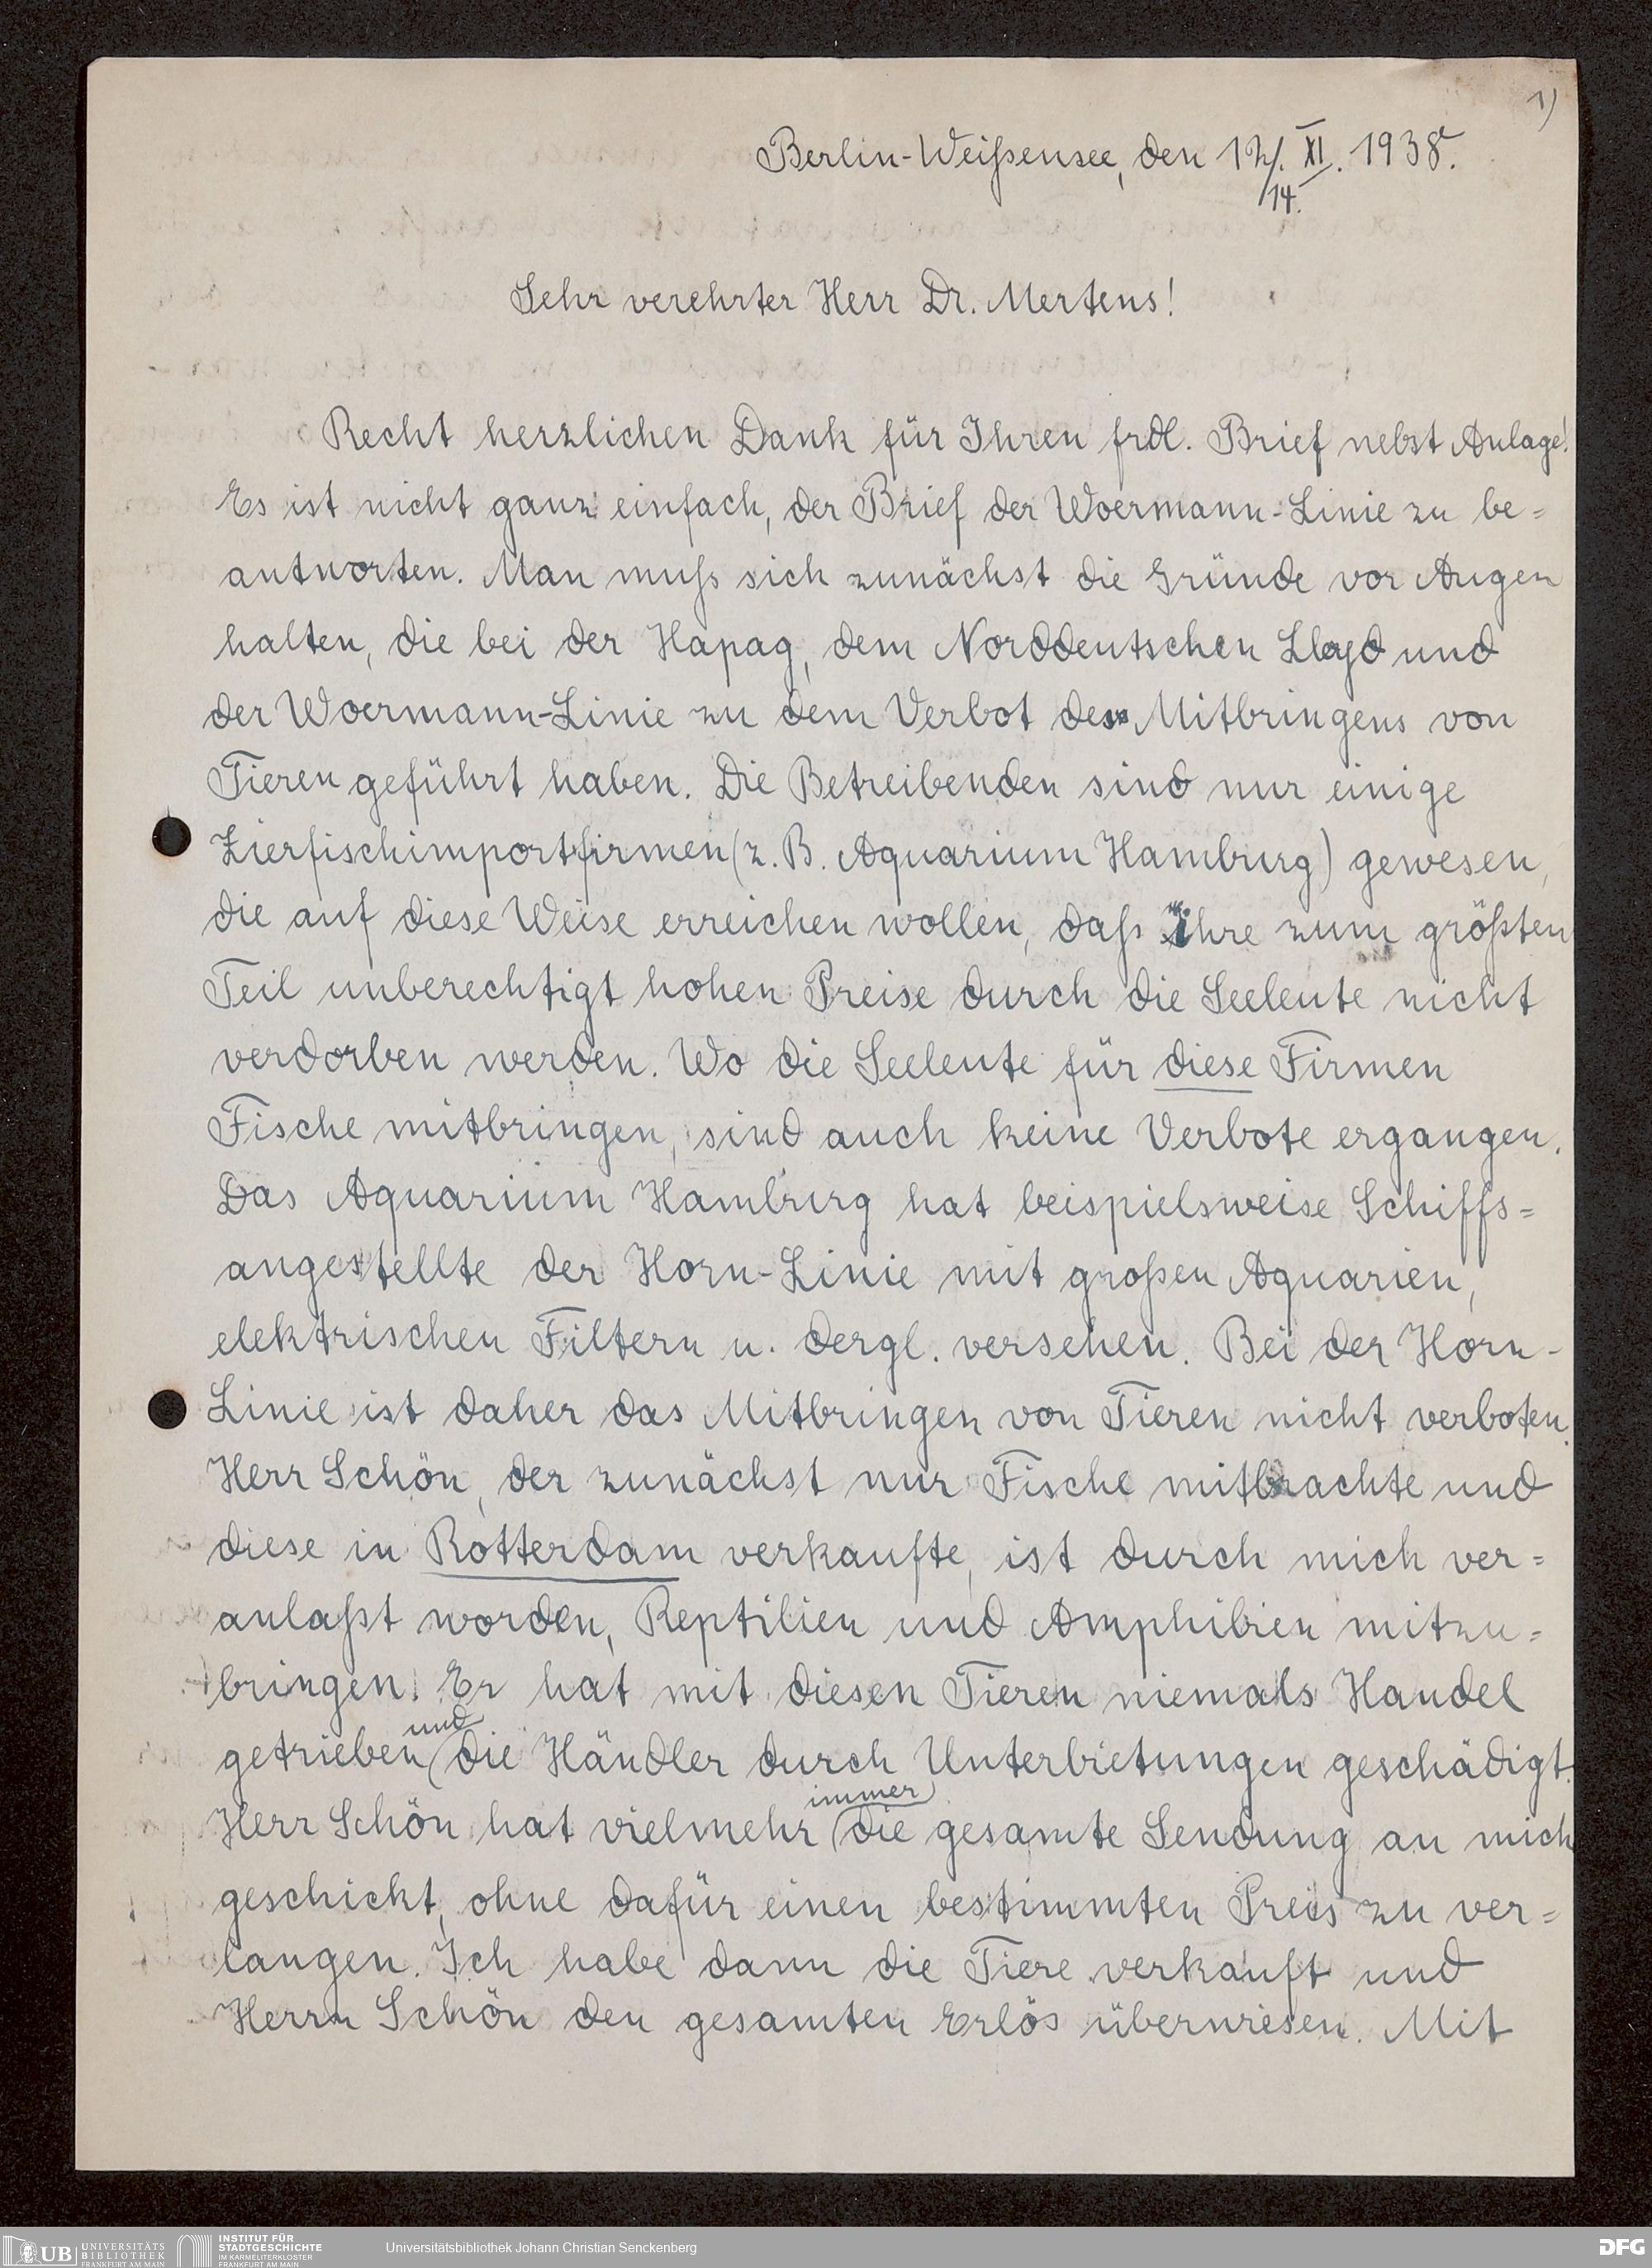 1)
Berlin-Weißensee, den 12/. XI. 1938.
14.
Sehr verehrter Herr Dr. Mertens!
Recht herzlichen Dank für Ihren frdl. Brief nebst Anlage!
Es ist nicht ganz einfach, der Brief der Woermann-Linie zu be=
antworten. Man muß sich zunächst die Gründe vor Augen
halten, die bei der Hapag, dem Norddeutschen Lloyd und
der Woermann-Linie zu dem Verbot des Mitbringens von
Tieren geführt haben. Die Betreibenden sind nur einige
Zierfischimportfirmen (z. B. Aquarium Hamburg) gewesen,
die auf diese Weise erreichen wollen, daß ihre zum größten
Teil unberechtigt hohen Preise durch die Seeleute nicht
verdorben werden. Wo die Seeleute für diese Firmen
Fische mitbringen, sind auch keine Verbote ergangen.
Das Aquarium Hamburg hat beispielsweise Schiffs=
angestellte der Horn-Linie mit großen Aquarien,
elektrischen Filtern u. dergl. versehen. Bei der Horn-
Linie ist daher das Mitbringen von Tieren nicht verboten.
Herr Schön, der zunächst nur Fische mitbrachte und
diese in Rotterdam verkaufte, ist durch mich ver=
anlaßt worden, Reptilien und Amphibien mitzu=
bringen. Er hat mit diesen Tieren niemals Handel
getrieben und die Händler durch Unterbietungen geschädigt.
Herr Schön hat vielmehr immer die gesamte Sendung an mich
geschickt, ohne dafür einen bestimmten Preis zu ver=
langen. Ich habe dann die Tiere verkauft und
Herrn Schön den gesamten Erlös überwiesen. Mit
UB UNIVERSITÄTS BIBLIOTHEK FRANKFURT AM MAIN
INSTITUT FÜR STADTGESCHICHTE IM KARMELITERKLOSTER FRANKFURT AM MAIN
Universitätsbibliothek Johann Christian Senckenberg
DFG